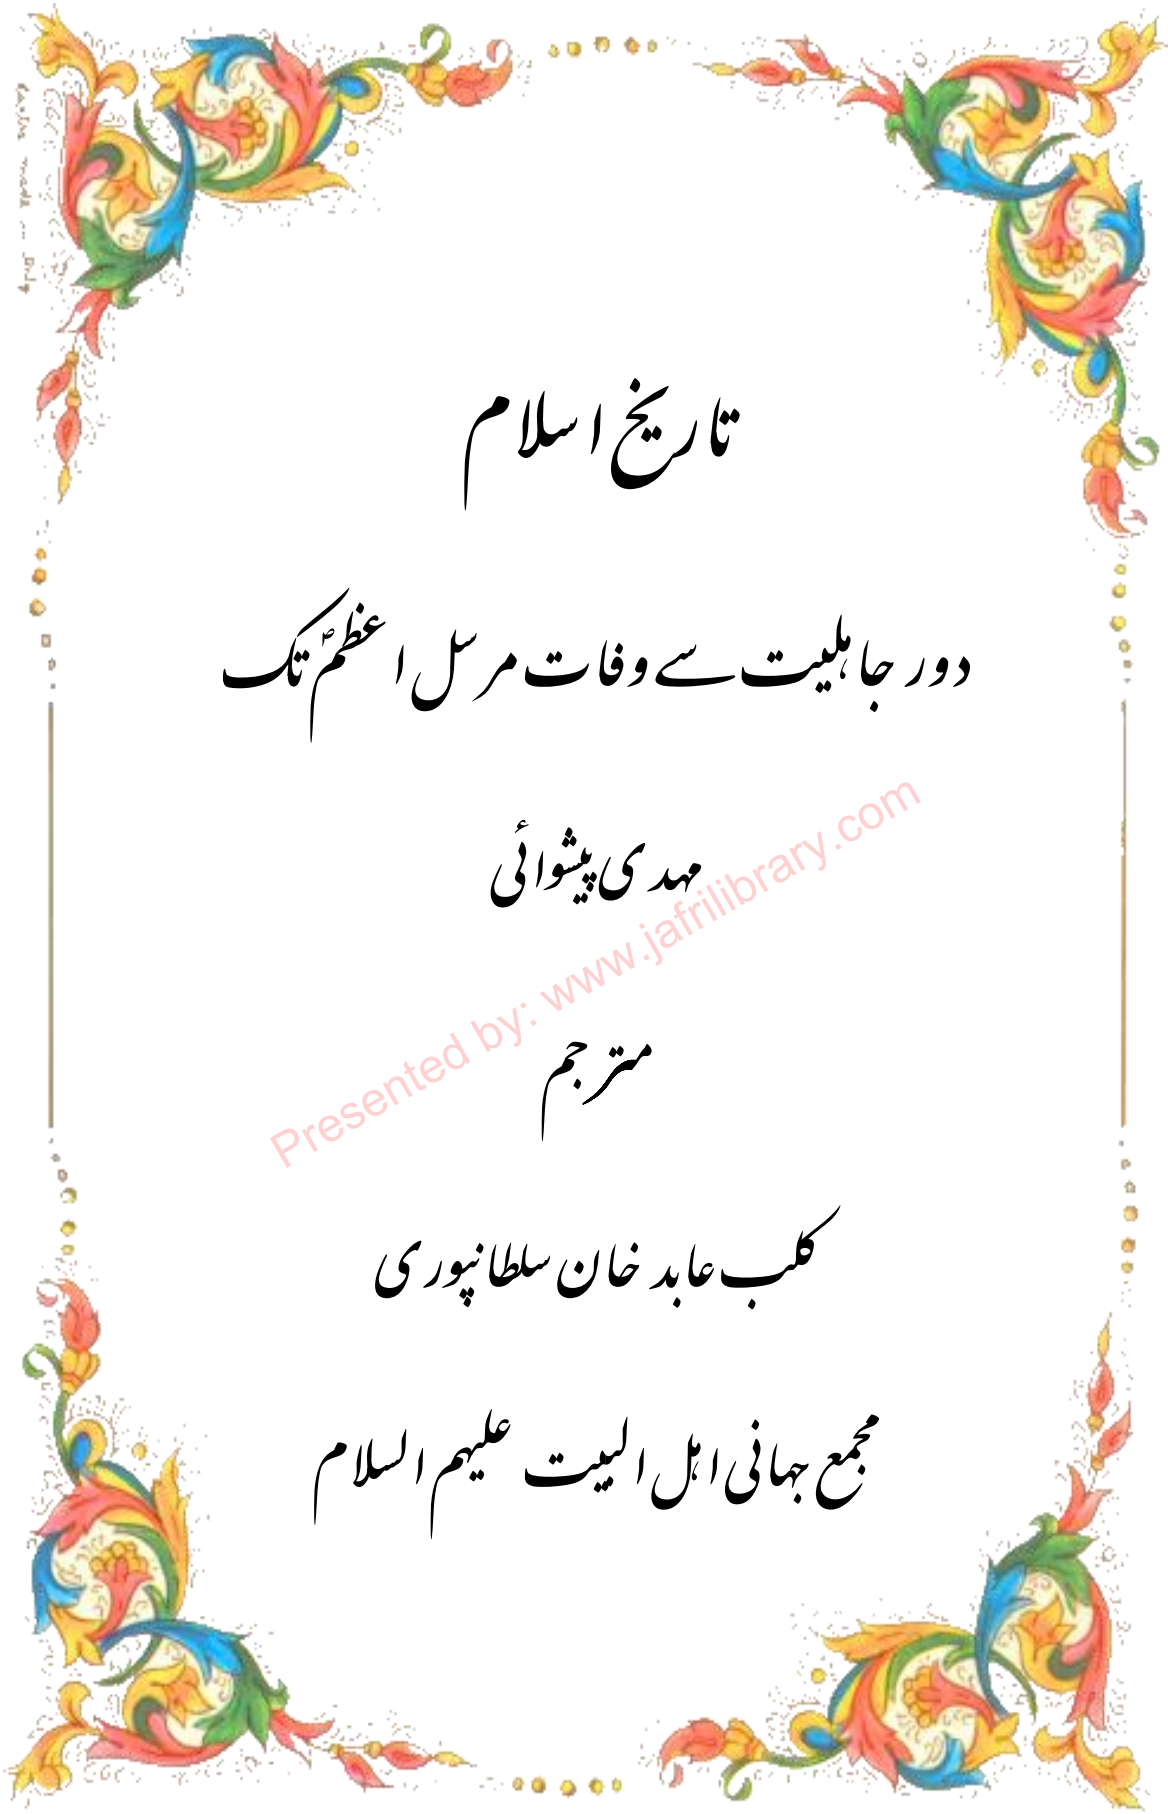 تاریخ اسلام
دور جاہلیت سے وفات مرسل اعظمؐ تک
مہدی پیشوائی
Presented by: www.jafrilibrary.com
مترجم
کلب عابد خان سلطانپوری
مجمع جہانی اہل البیت علیہم السلام